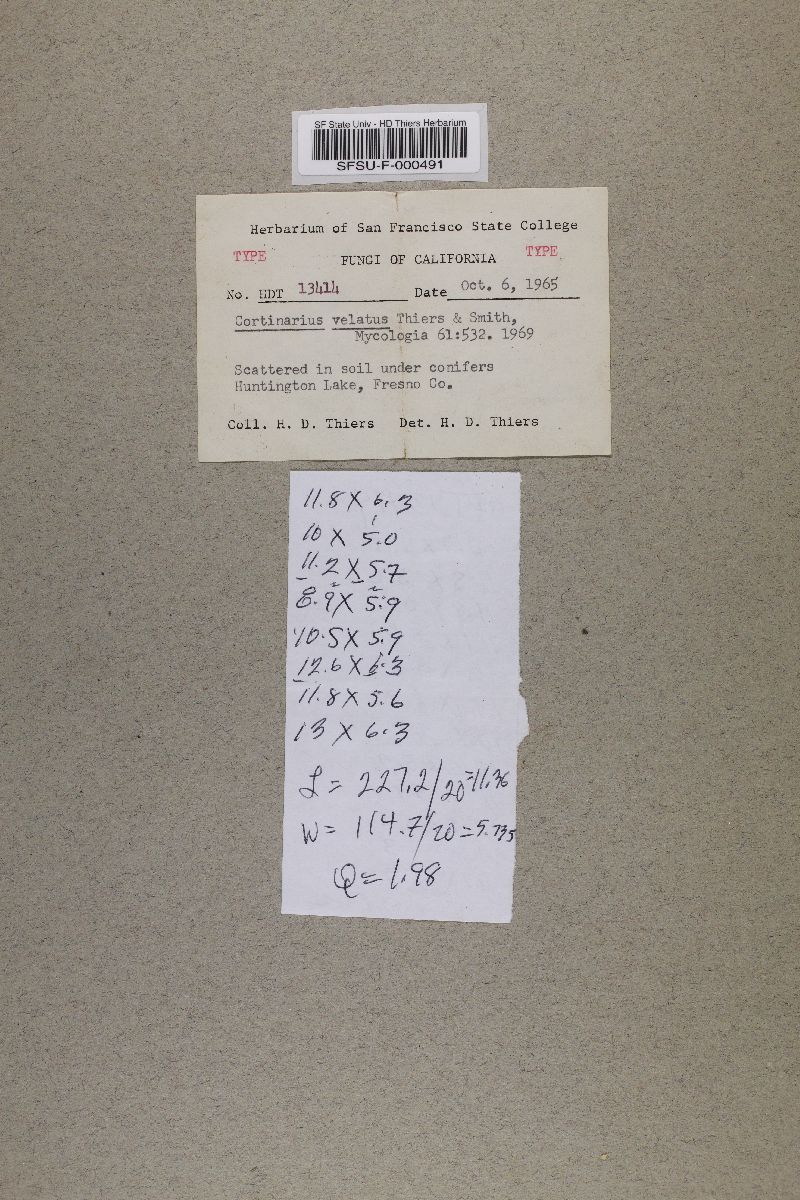 SF State Univ - HD Thiers Herbarium
SFSU-F-000491
Herbarium of San Francisco State College
TYPE FUNGI OF CALIFORNIA TYPE
No. HDT 13414 Date Oct. 6, 1965
Cortinarius velatus Thiers & Smith,
Mycologia 61:532. 1969
Scattered in soil under conifers
Huntington Lake, Fresno Co.
Coll. H. D. Thiers Det. H. D. Thiers
11.8 X 6.3
10 X 5.0
11.2 X 5.7
8.9 X 5.9
10.5 X 5.9
12.6 X 6.3
11.8 X 5.6
13 X 6.3
L = 227.2/20 = 11.36
W = 114.7/20 = 5.735
Q = 1.98